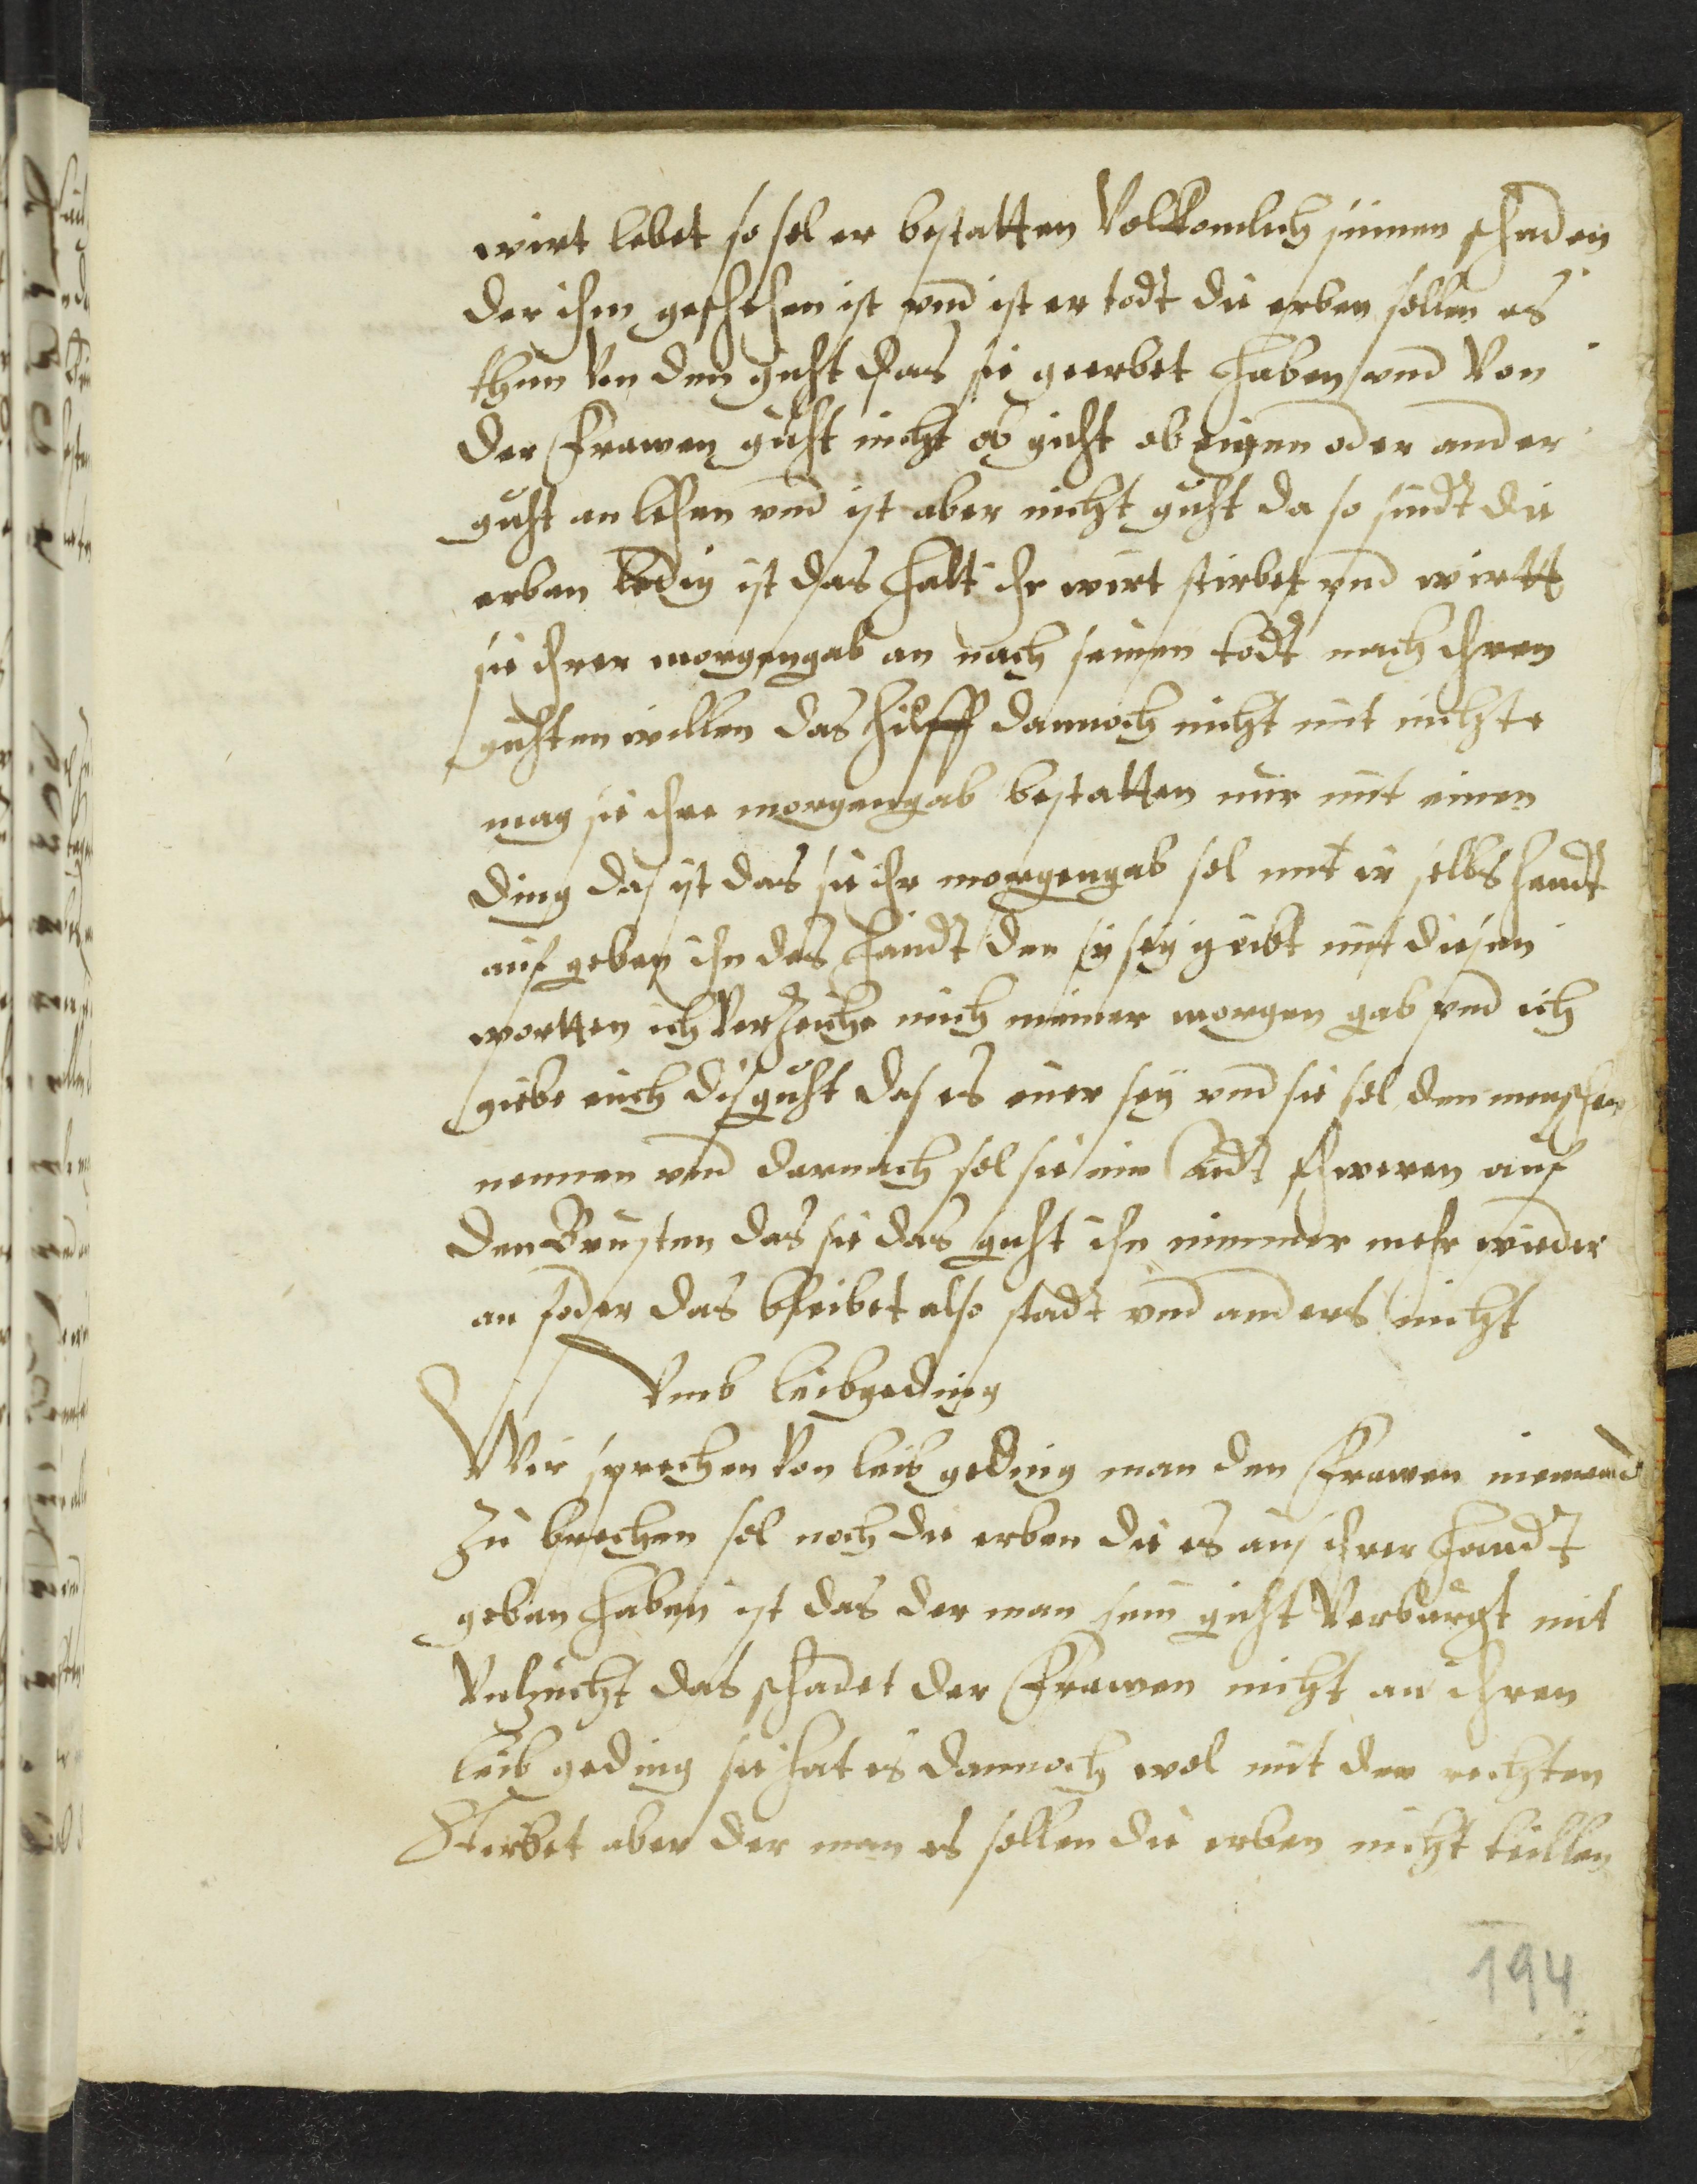 wirt lebet so sol er bestatten Volkomlich seinen schaden
der ihm geschehen ist vnd ist er todt die erben sollen es
thun von dem guht das sie geerbet haben vnd von
der Frawen guht nicht ob guht ob eigen oder ander
guht an lehen vnd ist aber nicht guht da so sindt die
erben ledig ist das halt ihr wirt stirbet vnd wirtt
sie ihrer morgengab an nach seinen todt nach ihren
guhten willen das hilfff dannoch nicht mit nichte
mag sie ihre morgengab bestatten nur mit einen
ding das ist das sie ihr morgengab sol mit ir selbs handt
auf geben ihn des handt den sy sey geibt mit diesen
wortten ich Verzeiche mich meiner morgen gab vnd ich
giebe euch dis guht das es euer sey vnd sie sol den menschen
nennen vnd darnach sol sie ein Aidt schweren auf
den Brusten das sie das guht ihn nimmer mehr wieder
an foder das bleibet also stadt vnd anders nicht
Vmb leibgeding
Wir sprechen von leib geding man den Frawen niemand
zu brechen sol noch die erben die es aus ihrer handt
geben haben ist das der man sein guht Verburgt mit
Vnzucht das schadet der Frawen nicht an ihren
leib geding sie hat es dannoch wol mit den rechten
Stirbet aber der man es sollen die erben nicht teillen
194